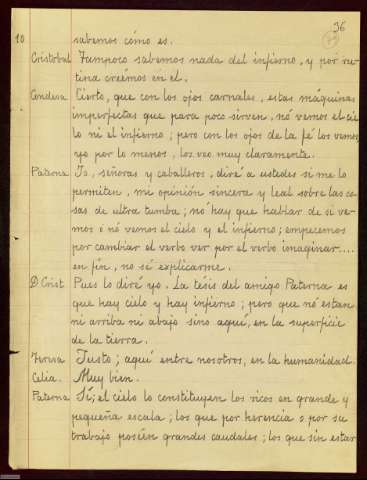 36
10 sabemos cómo es.
Cristobal Tampoco sabemos nada del infierno, y por ru-
tina creemos en el.
Condesa Cierto, que con los ojos carnales, estas máquinas
imperfectas que para poco sirven, nó vemos el cie-
lo ni el infierno; pero con los ojos de la fé los vemos,
yo por lo menos, los veo muy claramente.
Paterna Yo, señoras y caballeros, diré a ustedes si me lo
permiten, mi opinión sincera y leal sobre las co-
sas de ultra tumba; nó hay que hablar de si ve-
mos o nó vemos el cielo y el infierno; empecemos
por cambiar el verbo ver por el verbo imaginar....
en fin, no sé explicarme.
D. Crist. Pues lo diré yo. La tesis del amigo Paterna es
que hay cielo y hay infierno; pero que nó están
ni arriba ni abajo sino aquí, en la superficie
de la tierra.
Teresa Justo; aquí entre nosotros, en la humanidad.
Celia. Muy bien.
Paterna Sí; el cielo lo constituyen los ricos en grande y
pequeña escala; los que por herencia o por su
trabajo poséen grandes caudales; los que sin estar